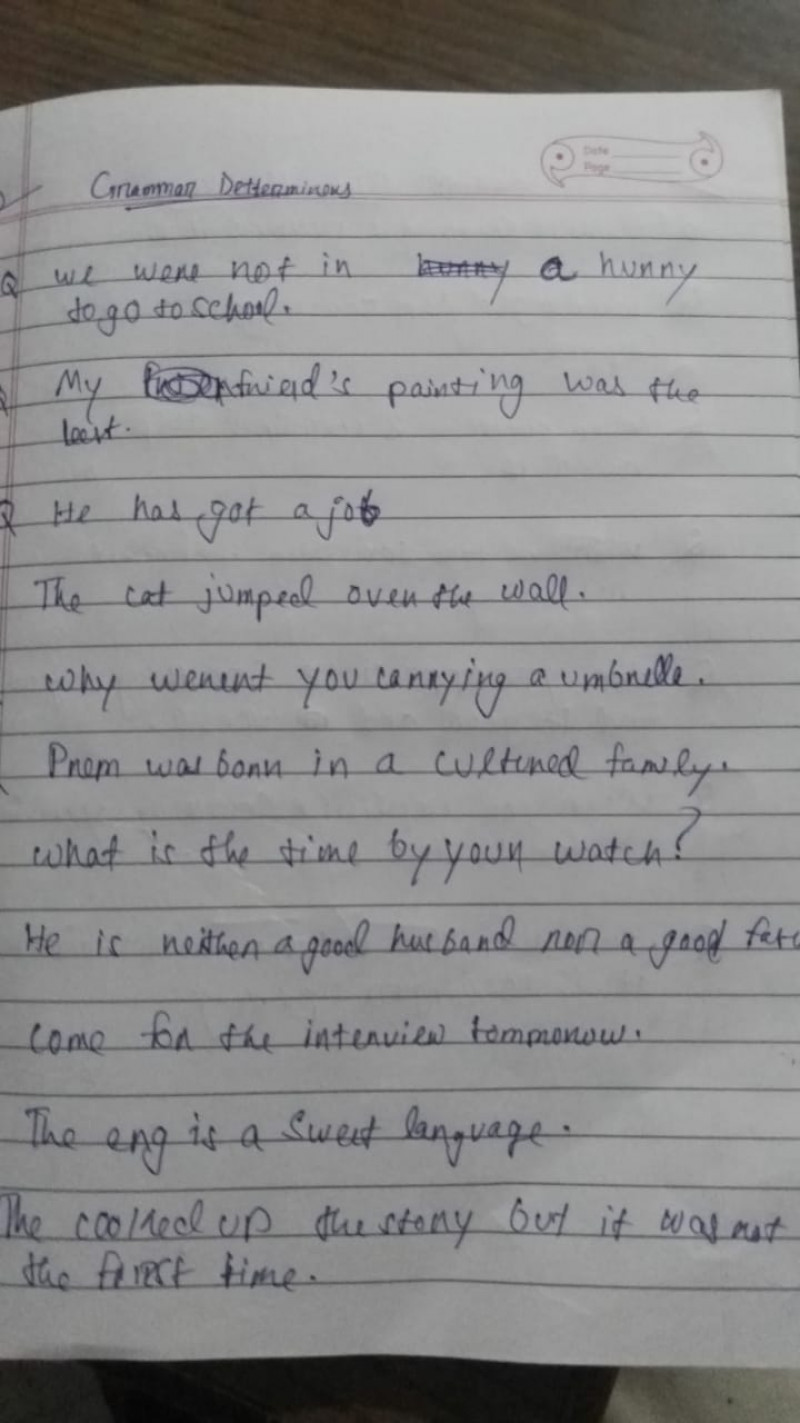 Grammar Detterminors
Date
Page
Q we were not in a hurry
to go to school.
My friend's painting was the
best.
Q He has got a job
The cat jumped over the wall.
Why werent you carrying a umbrella.
Prem was born in a cultured family.
What is the time by your watch?
He is neither a good husband nor a good
Come for the interview tommorow.
The eng is a sweet language.
The cooked up the story but it was not
the first time.